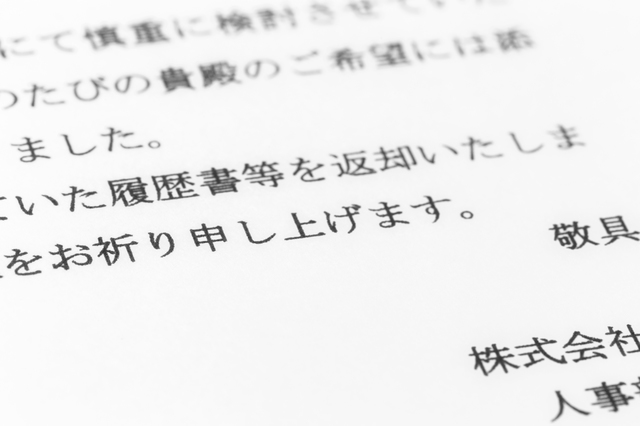 にて慎重に検討させていた
ったびの貴殿のご希望には添
ました。
いた履歴書等を返却いたしま
をお祈り申し上げます。
敬具
株式会社
人事